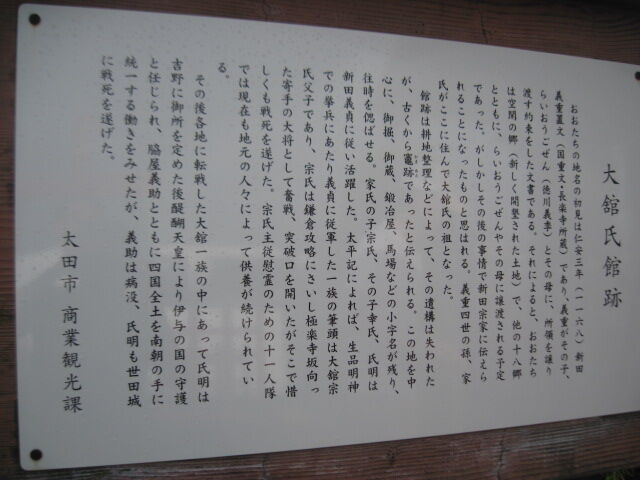 大舘氏館跡
おおたちの地名の初見は仁安三年（一一六八）新田
義重置文（国重文・長楽寺所蔵）であり、義重がその子、
らいおうごぜん（徳川義季）とその母に、所領を譲り
渡す約束をした文書である。それによると、おおたち
は空閑の郷（新しく開墾された土地）で、他の十八郷
とともに、らいおうごぜんやその母に譲渡される予定
であった。がしかしその後の事情で新田宗家に伝えら
れることになったものと思はれる。義重四世の孫、家
氏がここに住んで大舘氏の祖となった。
館跡は耕地整理などによって、その遺構は失われた
が、古くから竈跡であったと伝えられる。この地を中
心に、御堀、御蔵、鍛冶屋、馬場などの小字名が残り、
往時を偲ばせる。家氏の子宗氏、その子幸氏、氏明は
新田義貞に従い活躍した。太平記によれば、生品明神
での挙兵にあたり義貞に従軍した一族の筆頭は大舘宗
氏父子であり、宗氏は鎌倉攻略にさいし極楽寺坂向っ
た寄手の大将として奮戦、突破口を開いたがそこで惜
しくも戦死を遂げた。宗氏主従慰霊のための十一人隊
では現在も地元の人々によって供養が続けられてい
る。
その後各地に転戦した大舘一族の中にあって氏明は
吉野に御所を定めた後醍醐天皇により伊与の国の守護
と任じられ、脇屋義助とともに四国全土を南朝の手に
統一する働きをみせたが、義助は病没、氏明も世田城
に戦死を遂げた。
太田市 商業観光課